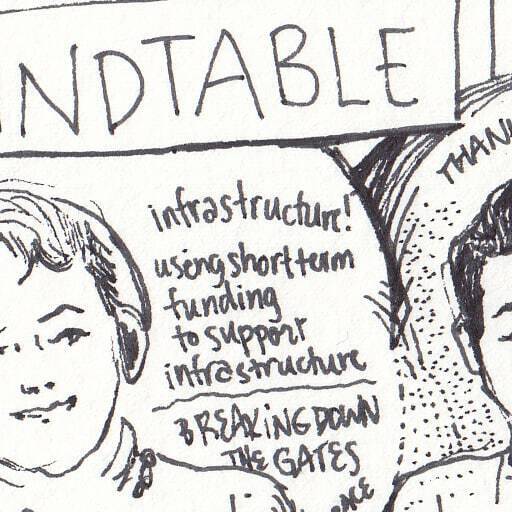 NDTABLE
THAN
infrastructure!
using short term
funding
to support
infrastructure
BREAKING DOWN
THE GATES